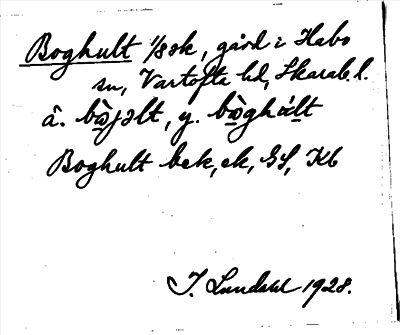 Boghult 1/8 sk, gård i Habo
sn, Vartofta hd, Skarab. l.
â. bòjəlt, y. bòghúlt
Boghult bek, ek, GS, Kb
I. Lundahl 1928.